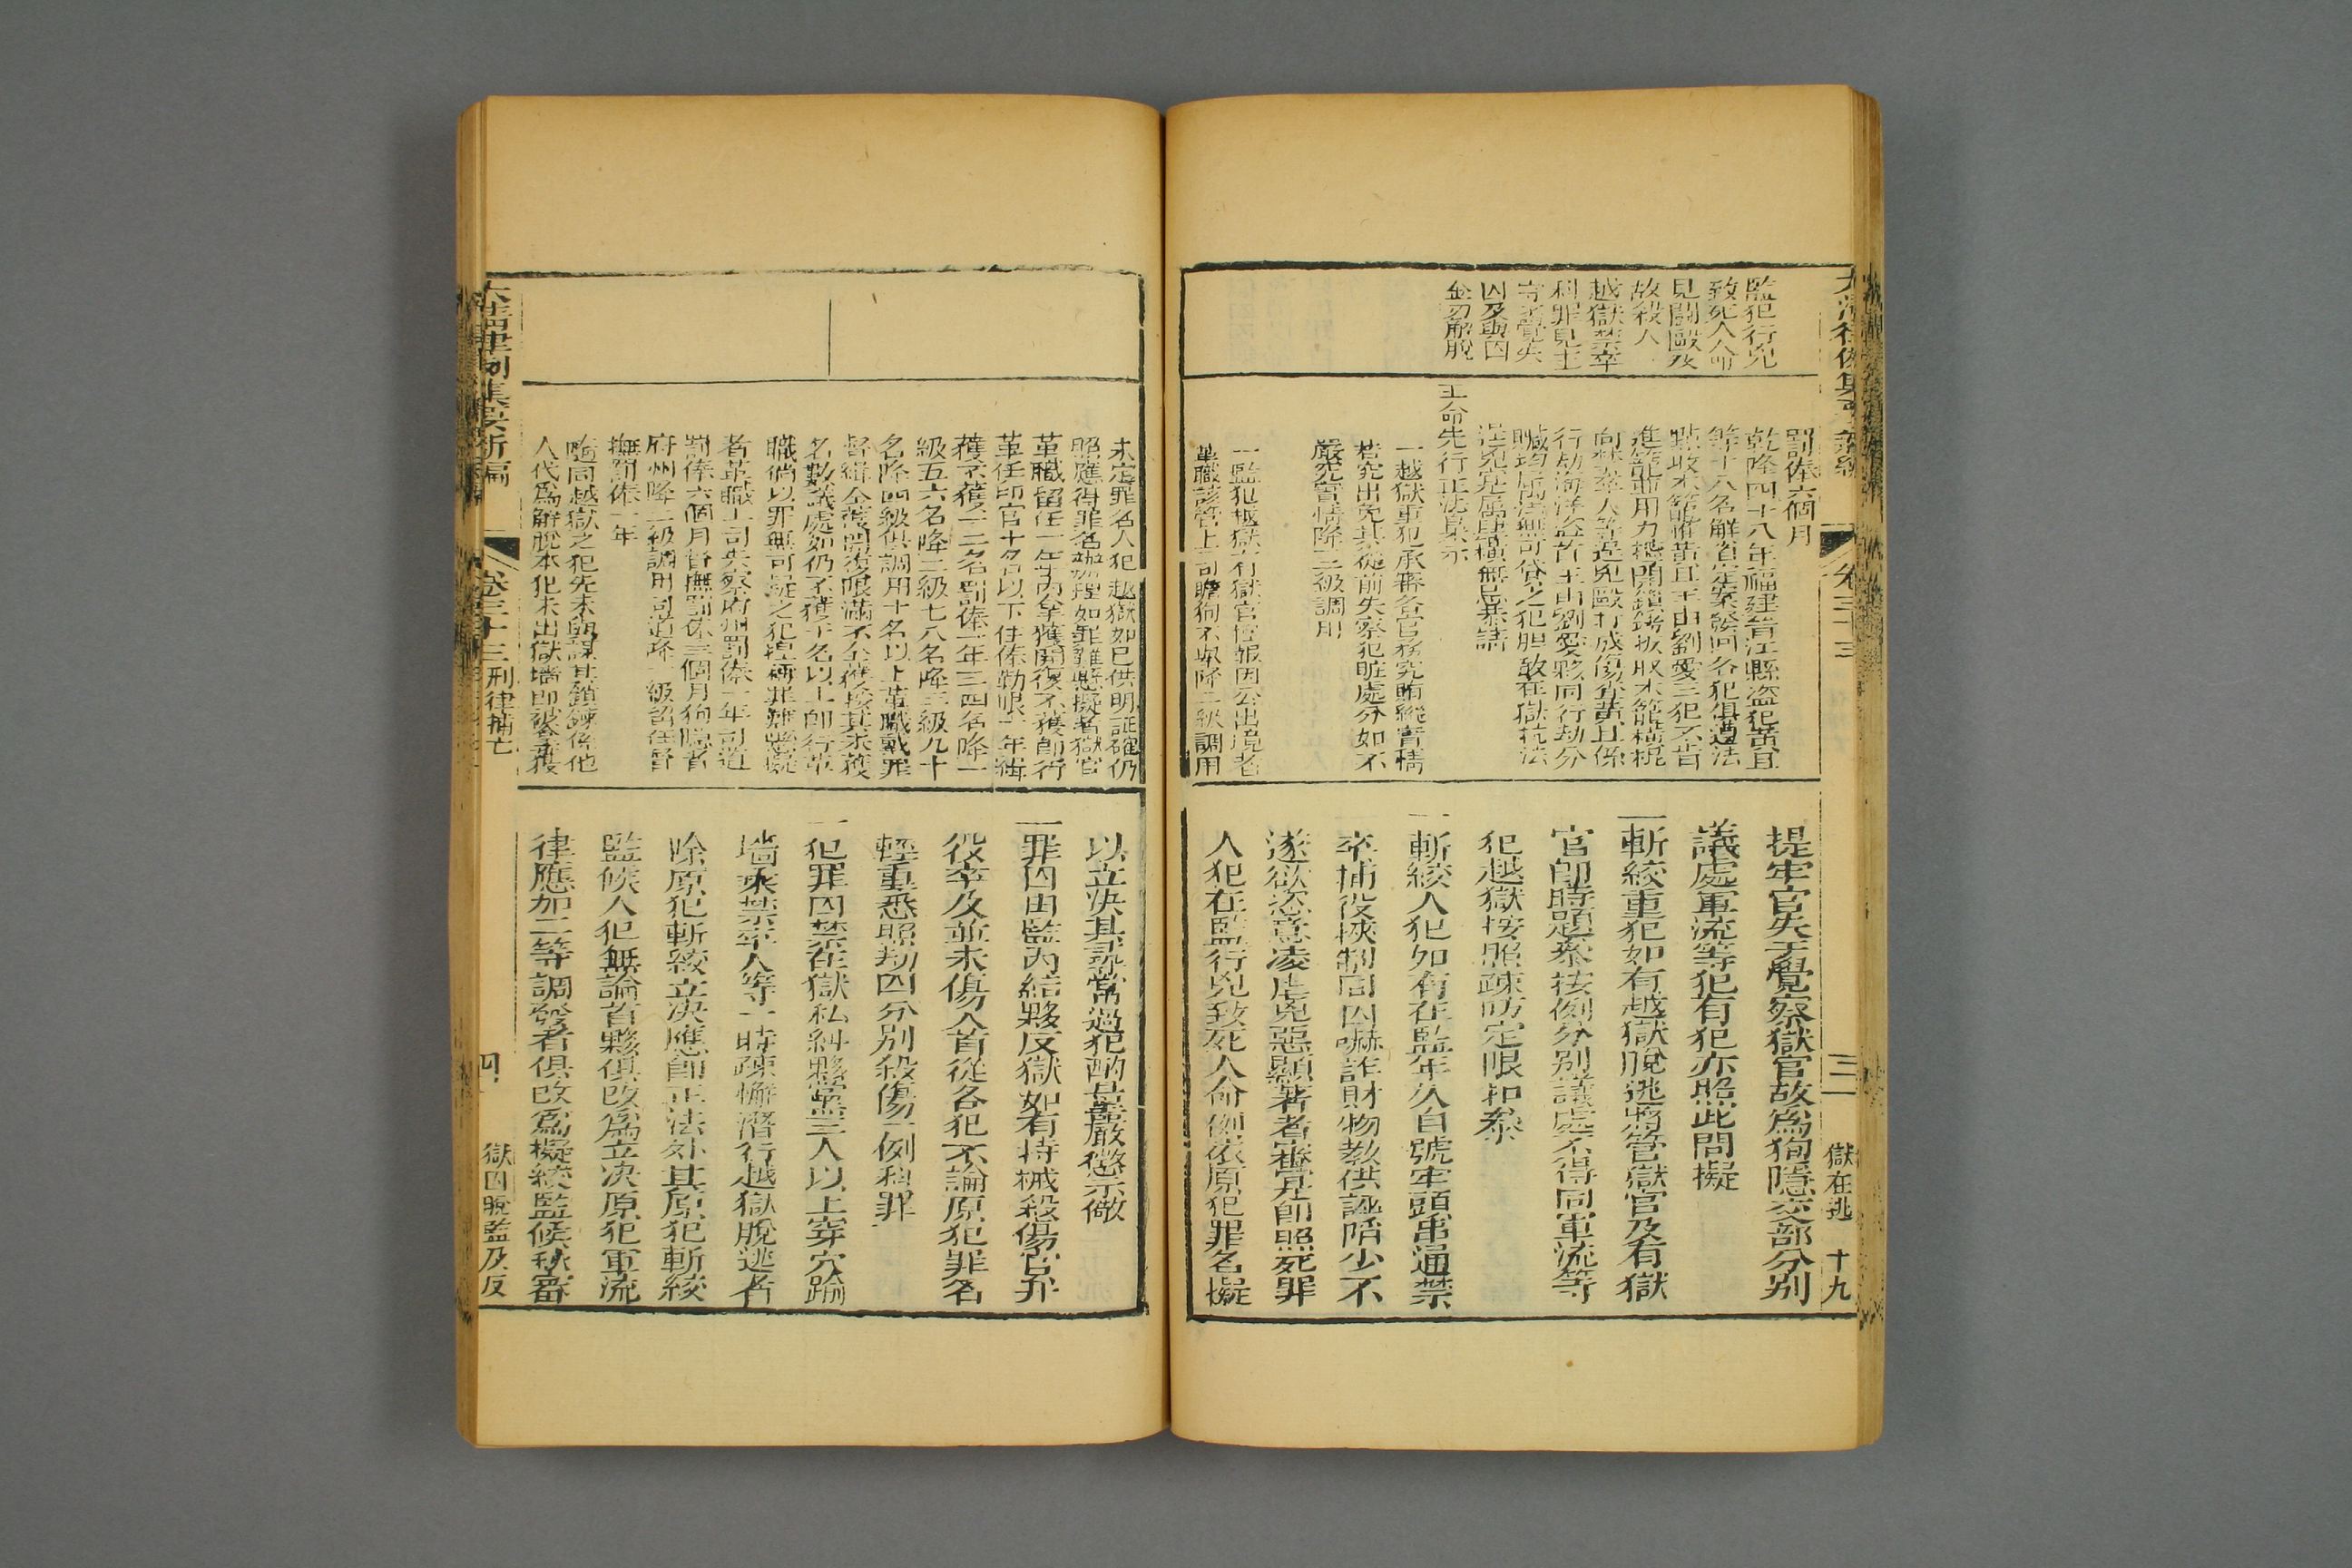 監犯行兇
致死人命
見鬬毆及
故殺人
越獄禁卒
科罪見主
守不覺失
囚及與囚
金刃解脫
罰俸六個月
乾隆四十八年福建晉江縣盜犯黃且
等十八名解省定案發回各犯俱遵法
點收木籠惟黃且王由劉愛三犯不肯
進籠並用力擡開鎖鐐扳取木籠橫棍
向禁卒人等逞兇毆打成傷查黃且係
行劫海洋盜首王由劉愛夥同行劫分
贓均屬法無可貸之犯胆敢在獄抗法
逞兇寔屬肆橫無忌恭請
王命先行正法梟示
一越獄重犯承審各官務究賄縱實情
若究出免其從前失察犯賍處分如不
嚴究實情降二級調用
一監犯越獄有獄官捏報因公出境者
革職該管上司瞻狥不叅降二級調用
提牢官失于覺察獄官故爲狥隱交部分別
議處軍流等犯有犯亦照此問擬
一斬絞重犯如有越獄脫逃將管獄官及有獄
官即時題叅按例分別議處不得同軍流等
犯越獄按照疎防定限扣叅
一斬絞人犯如有在監年久自號牢頭串通禁
卒捕役挾制同囚嚇詐財物教供誣陷少不
遂欲恣意凌虐兇惡顯著者審實即照死罪
人犯在監行兇致死人命例依原犯罪名擬
卷三十三
獄在逃 十九
未定罪名人犯越獄如已供明証確仍
照應得罪名辦理如罪難懸擬者獄官
革職留任一年內全獲開復不獲即行
革任印官十名以下住俸勒限一年緝
獲不獲一二名罰俸一年三四名降一
級五六名降二級七八名降三級九十
名降四級俱調用十名以上革職戴罪
督緝全獲開復限滿不全獲按其未獲
名數議處如仍不獲十名以上即行革
職倘以罪無可疑之犯捏稱罪難懸擬
者革職上司失察府州罰俸一年司道
罰俸六個月督撫罰俸三個月狥隱者
府州降二級調用司道降一級留任督
撫罰俸一年
隨同越獄之犯先未與謀其鎖鍊係他
人代爲解脫本犯未出獄墻即被拏獲
以立決其尋常過犯酌量嚴懲示儆
一罪囚由監內結夥反獄如有持械殺傷官弁
役卒及並未傷人首從各犯不論原犯罪名
輕重悉照劫囚分別殺傷一例科罪
一犯罪囚禁在獄私糾夥黨三人以上穿穴踰
墻乘禁卒人等一時疎懈潛行越獄脫逃者
除原犯斬絞立決應即正法外其原犯斬絞
監候人犯無論首夥俱改爲立決原犯軍流
律應加二等調發者俱改爲擬絞監候秋審
大清律例集要新編
卷三十三 刑律捕亡
獄囚脫監及反